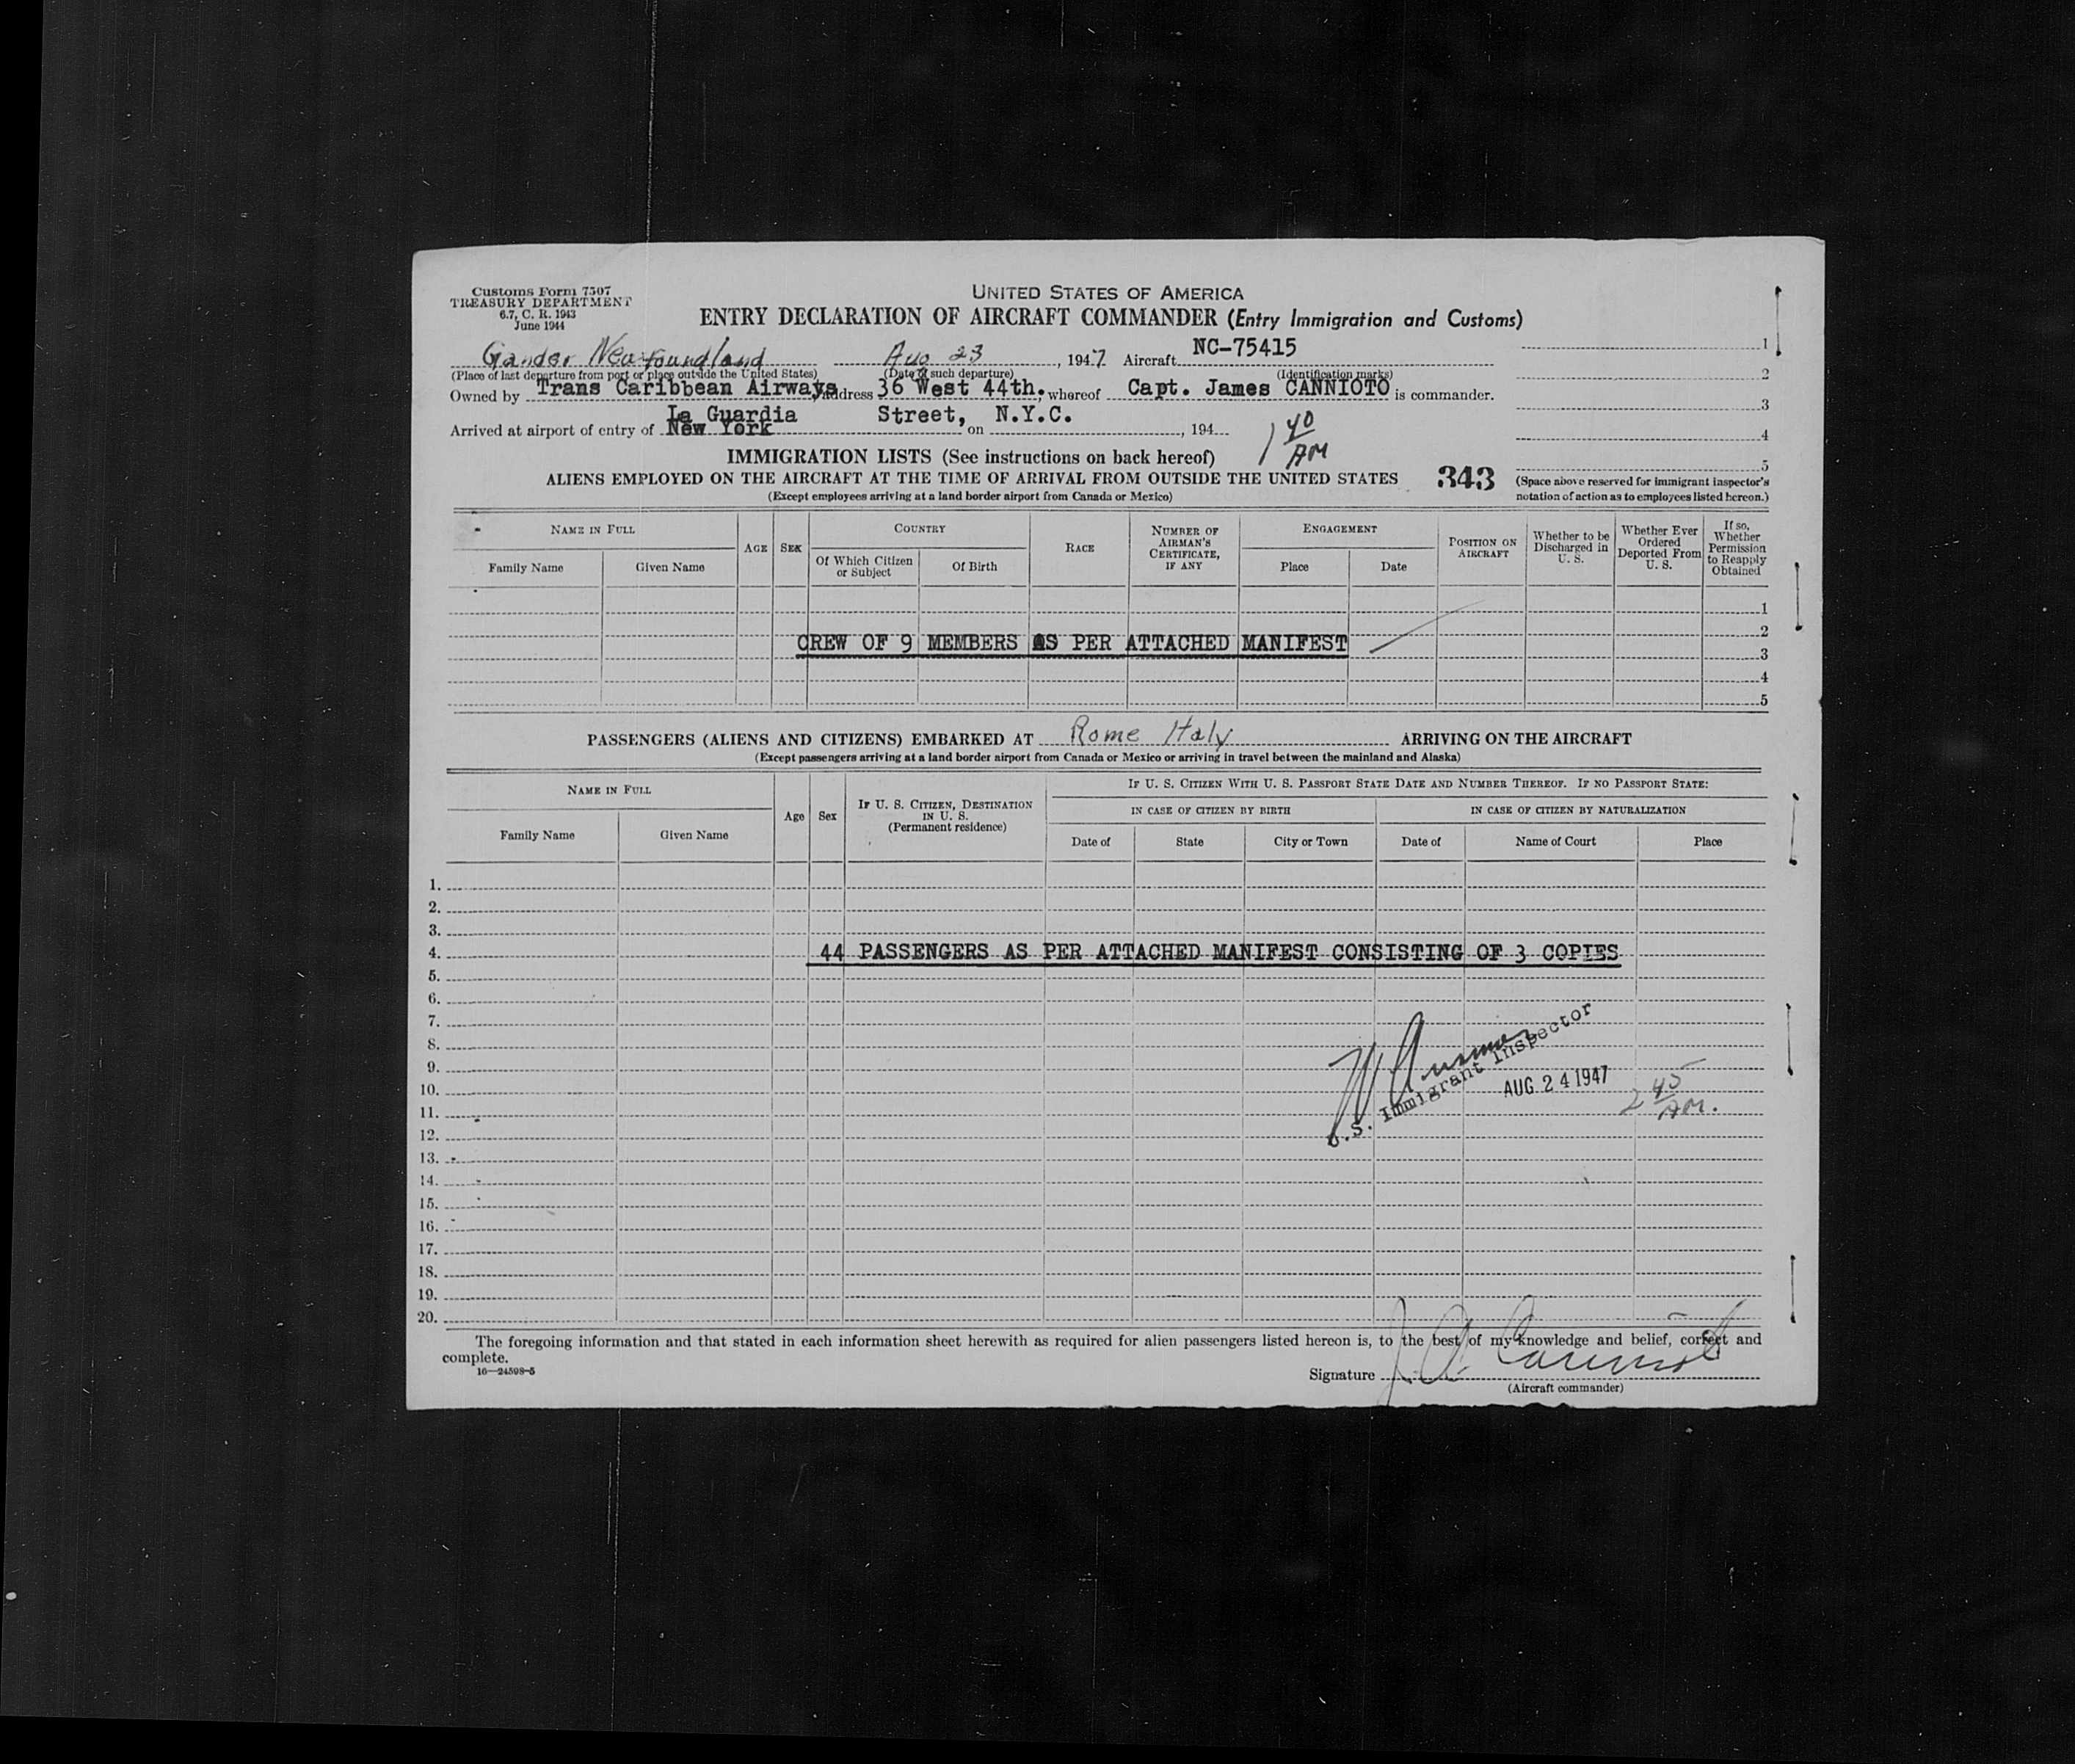 Customs Form 7507
TREASURY DEPARTMENT
6.7, C. R. 1943
June 1944
UNITED STATES OF AMERICA
ENTRY DECLARATION OF AIRCRAFT COMMANDER (Entry Immigration and Customs)
Gander Newfoundland Aug 23, 1947 Aircraft NC-75415
(Place of last departure from port or place outside the United States) (Date of such departure) (Identification marks)
Owned by Trans Caribbean Airways address 36 West 44th., whereof Capt. James CANNIOTO is commander.
La Guardia Street, N.Y.C.
Arrived at airport of entry of New York on , 194
1 40 AM
1
2
3
4
5
IMMIGRATION LISTS (See instructions on back hereof)
ALIENS EMPLOYED ON THE AIRCRAFT AT THE TIME OF ARRIVAL FROM OUTSIDE THE UNITED STATES 343
(Except employees arriving at a land border airport from Canada or Mexico)
(Space above reserved for immigrant inspector's
notation of action as to employees listed hereon.)
NAME IN FULL
Family Name Given Name
AGE SEX
COUNTRY
Of Which Citizen or Subject Of Birth
RACE
NUMBER OF AIRMAN'S CERTIFICATE, IF ANY
ENGAGEMENT
Place Date
POSITION ON AIRCRAFT
Whether to be Discharged in U. S.
Whether Ever Ordered Deported From U. S.
If so, Whether Permission to Reapply Obtained
1
2
CREW OF 9 MEMBERS AS PER ATTACHED MANIFEST
3
4
5
PASSENGERS (ALIENS AND CITIZENS) EMBARKED AT Rome Italy ARRIVING ON THE AIRCRAFT
(Except passengers arriving at a land border airport from Canada or Mexico or arriving in travel between the mainland and Alaska)
NAME IN FULL
Family Name Given Name
Age Sex
IF U. S. CITIZEN, DESTINATION IN U. S.
(Permanent residence)
IF U. S. CITIZEN WITH U. S. PASSPORT STATE DATE AND NUMBER THEREOF. IF NO PASSPORT STATE:
IN CASE OF CITIZEN BY BIRTH IN CASE OF CITIZEN BY NATURALIZATION
Date of State City or Town Date of Name of Court Place
1.
2.
3.
4. 44 PASSENGERS AS PER ATTACHED MANIFEST CONSISTING OF 3 COPIES
5.
6.
7.
8.
9.
10.
11.
12.
13.
14.
15.
16.
17.
18.
19.
20.
U.S. Immigrant Inspector
AUG 24 1947
2 45 AM.
The foregoing information and that stated in each information sheet herewith as required for alien passengers listed hereon is, to the best of my knowledge and belief, correct and
complete.
16—24598-5
Signature
(Aircraft commander)